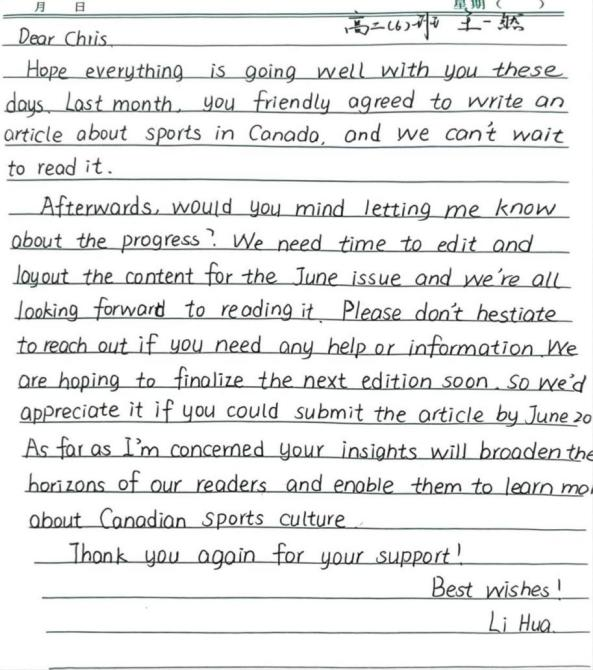 月 日 星期（ ）
高二(6)班 王一然
Dear Chris.
Hope everything is going well with you these
days. Last month, you friendly agreed to write an
article about sports in Canada, and we can't wait
to read it.
Afterwards, would you mind letting me know
about the progress? We need time to edit and
layout the content for the June issue and we're all
looking forward to reading it. Please don't hestiate
to reach out if you need any help or information. We
are hoping to finalize the next edition soon. So we'd
appreciate it if you could submit the article by June 20
As far as I'm concerned your insights will broaden the
horizons of our readers and enable them to learn mo
about Canadian sports culture
Thank you again for your support!
Best wishes!
Li Hua.